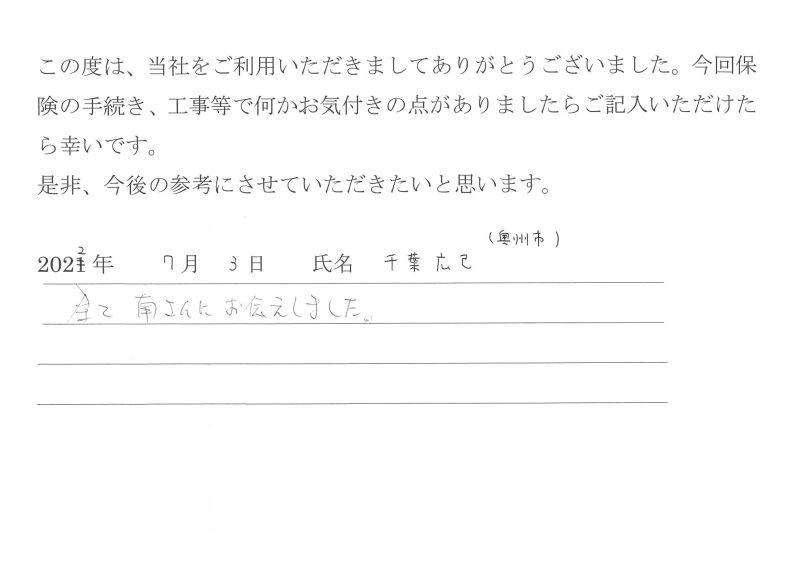 この度は、当社をご利用いただきましてありがとうございました。今回保
険の手続き、工事等で何かお気付きの点がありましたらご記入いただけた
ら幸いです。
是非、今後の参考にさせていただきたいと思います。
(奥州市)
2022年 7月 3日 氏名 千葉広己
全て 南さんに お伝えしました。